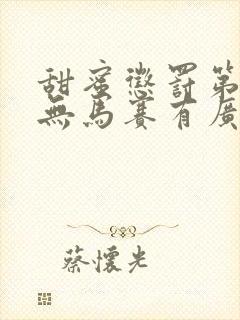 甜蜜懲罰第
無馬賽有廣
蔡懷光